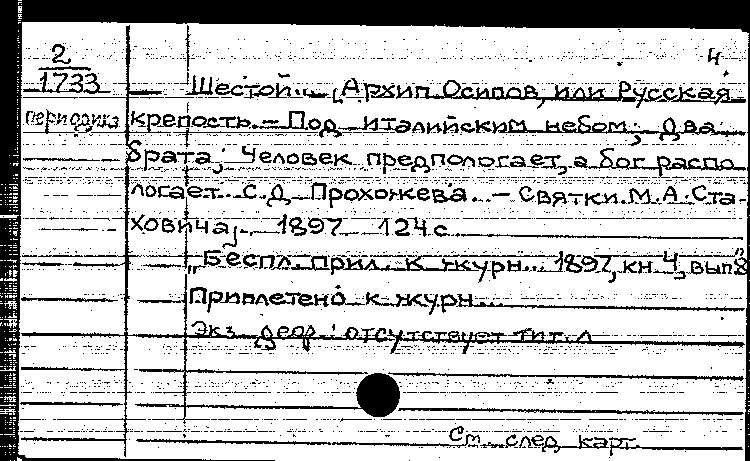 2
1733
4
Шестой... [Архип Осипов, или Русская
периодика крепость. – Под италийским небом; Два
брата; Человек предпологает, а бог распо
логает. С.Д. Прохожева. – Святки. М.А. Ста-
ховича]. 1897 124 с
"Беспл. прил. к журн... 1897, кн. 4, вып 8"
Приплетено к журн...
Экз. деф.: отсутствует тит. л
См. след. карт.